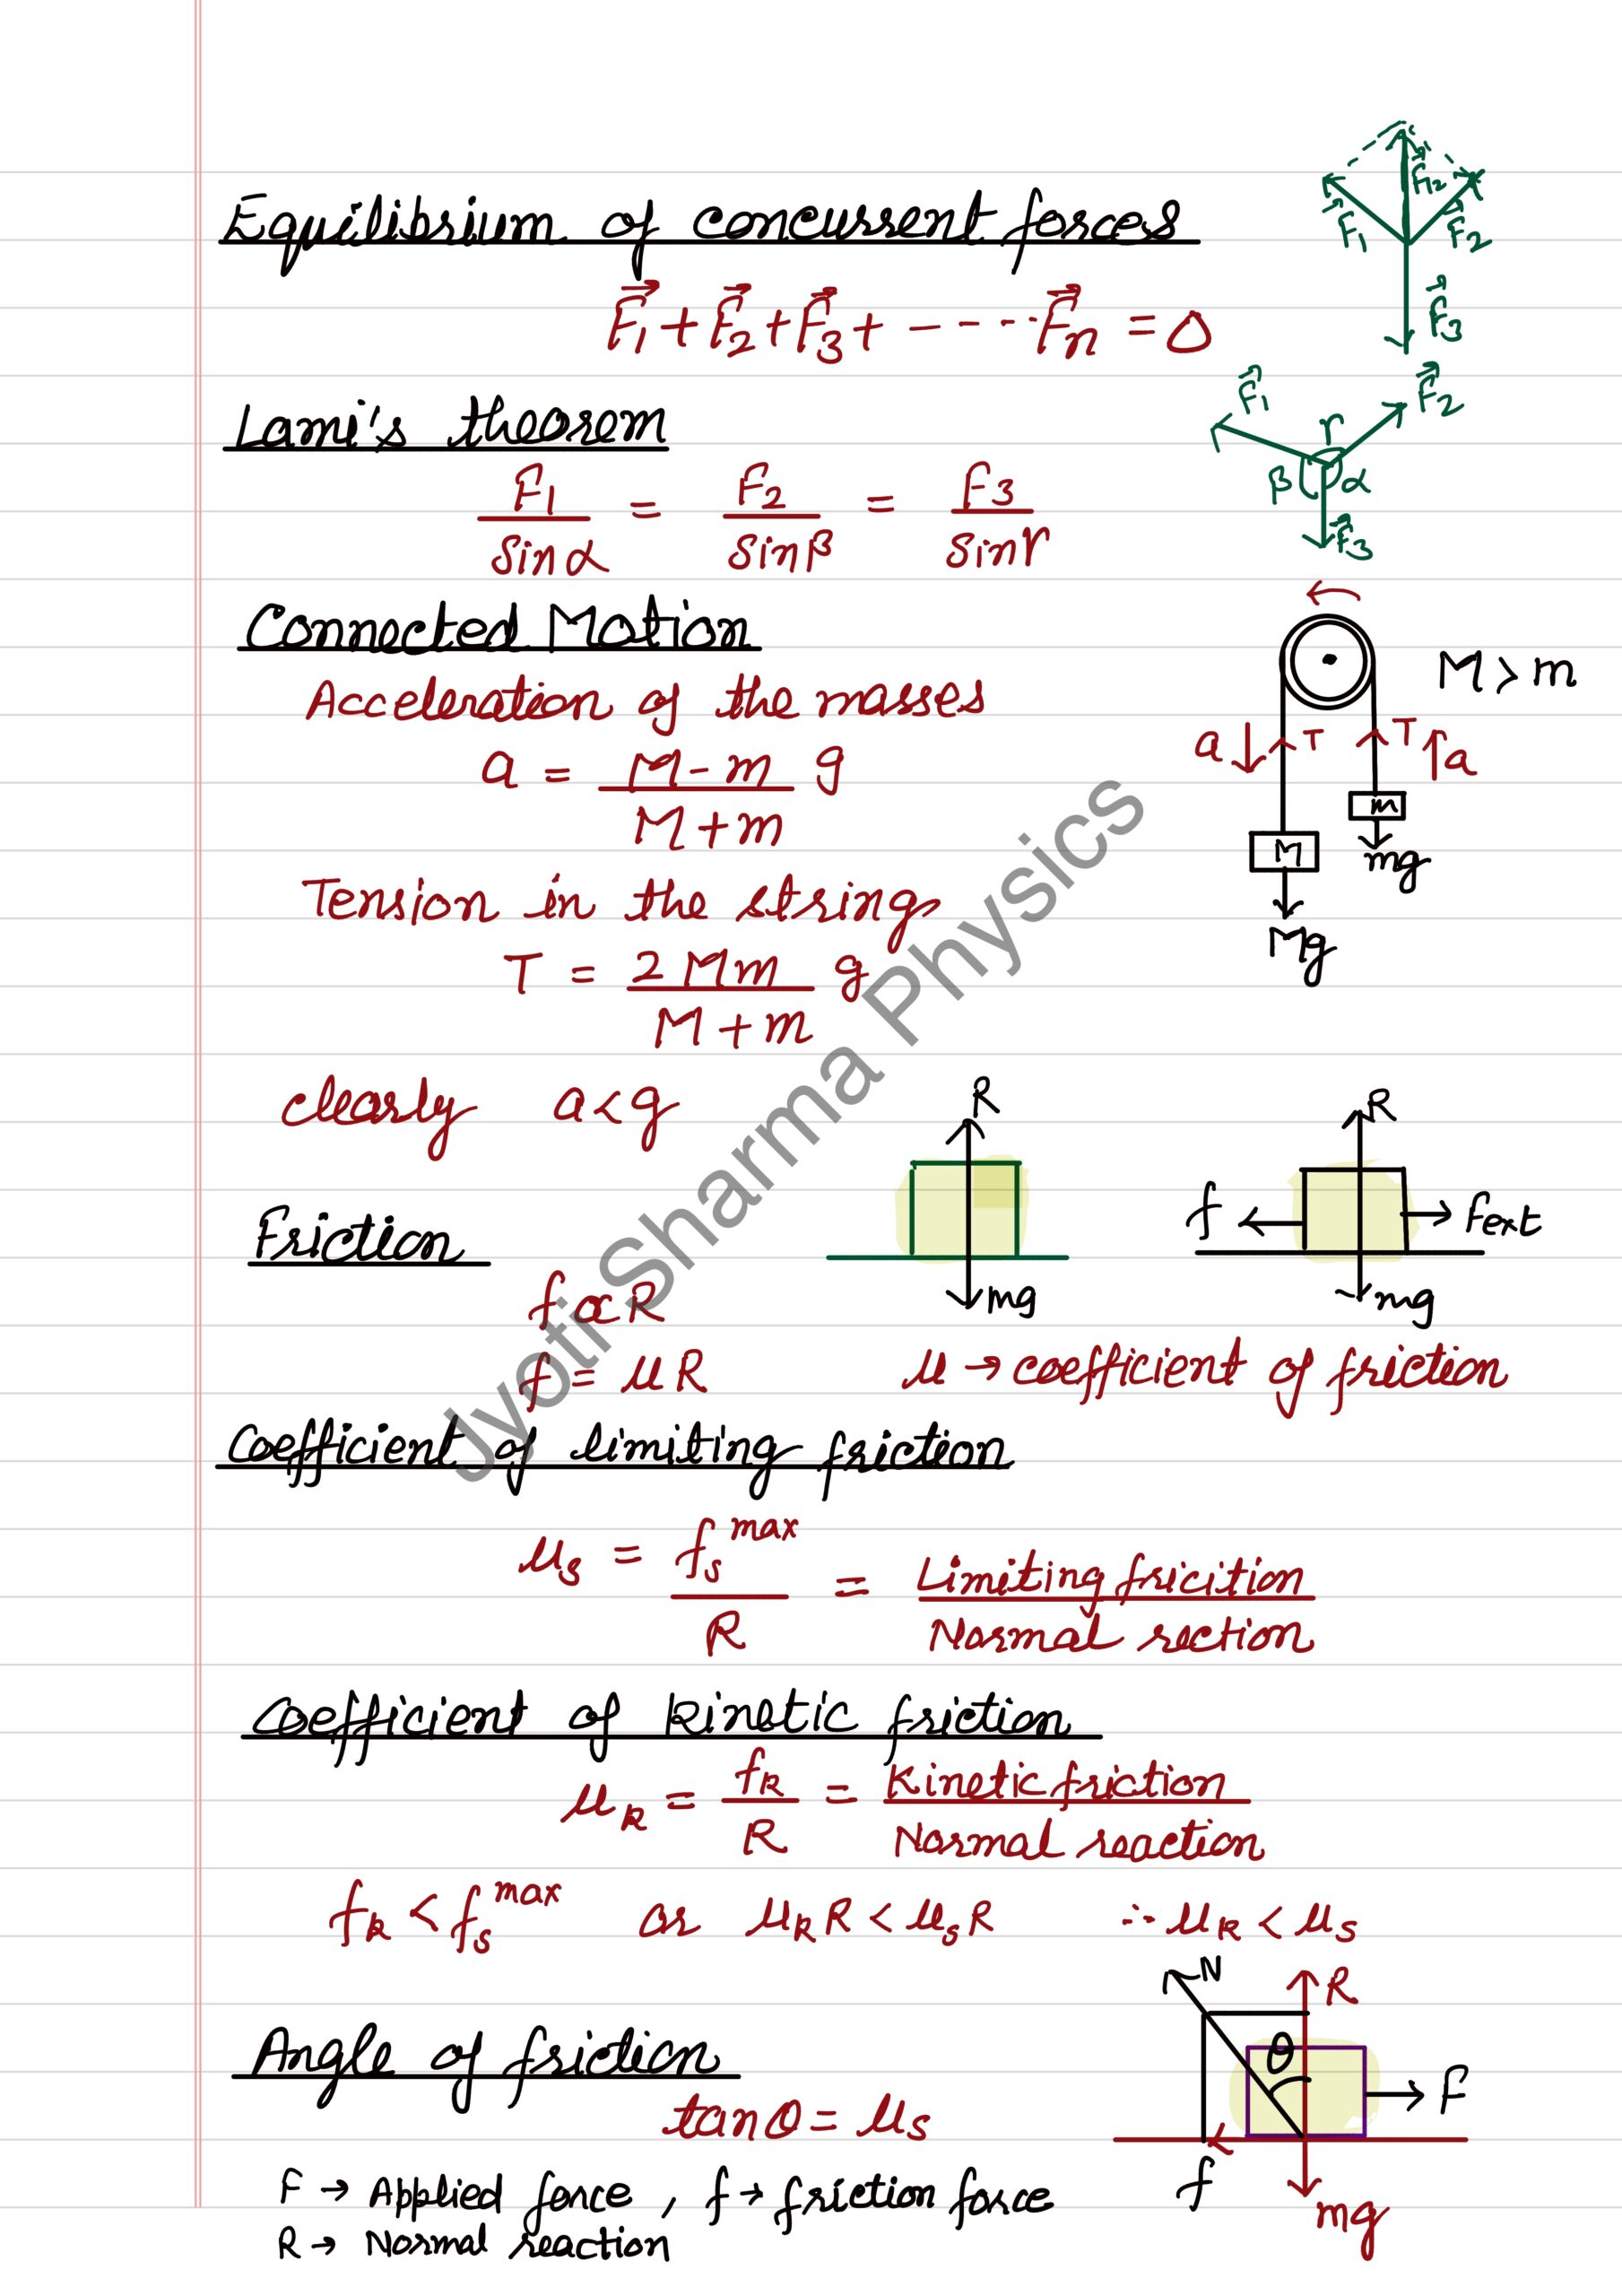 Equilibrium of concurrent forces
F⃗₁ + F⃗₂ + F⃗₃ + ----- F⃗n = 0
F⃗₁
F⃗₁₂
F⃗₂
F⃗₃
Lami's theorem
F₁/sinα = F₂/sinβ = F₃/sinr
F⃗₁
F⃗₂
r
β
α
F⃗₃
Connected Motion
Acceleration of the masses
a = (M-m)/(M+m) g
Tension in the string
T = 2Mm/(M+m) g
clearly a<g
M>m
a
T
T
a
M
m
mg
Mg
Friction
f ∝ R
f = μR
R
mg
R
f
Fext
mg
μ → coefficient of friction
Coefficient of limiting friction
μs = fs^max/R = Limiting fricition/Normal rection
Coefficient of kinetic friction
μk = fk/R = Kinetic friction/Normal reaction
fk < fs^max or μkR < μsR ∴ μk < μs
Angle of friction
tanθ = μs
N
R
θ
F
f
mg
F → Applied force, f → friction force
R → Normal reaction
Jyoti Sharma Physics